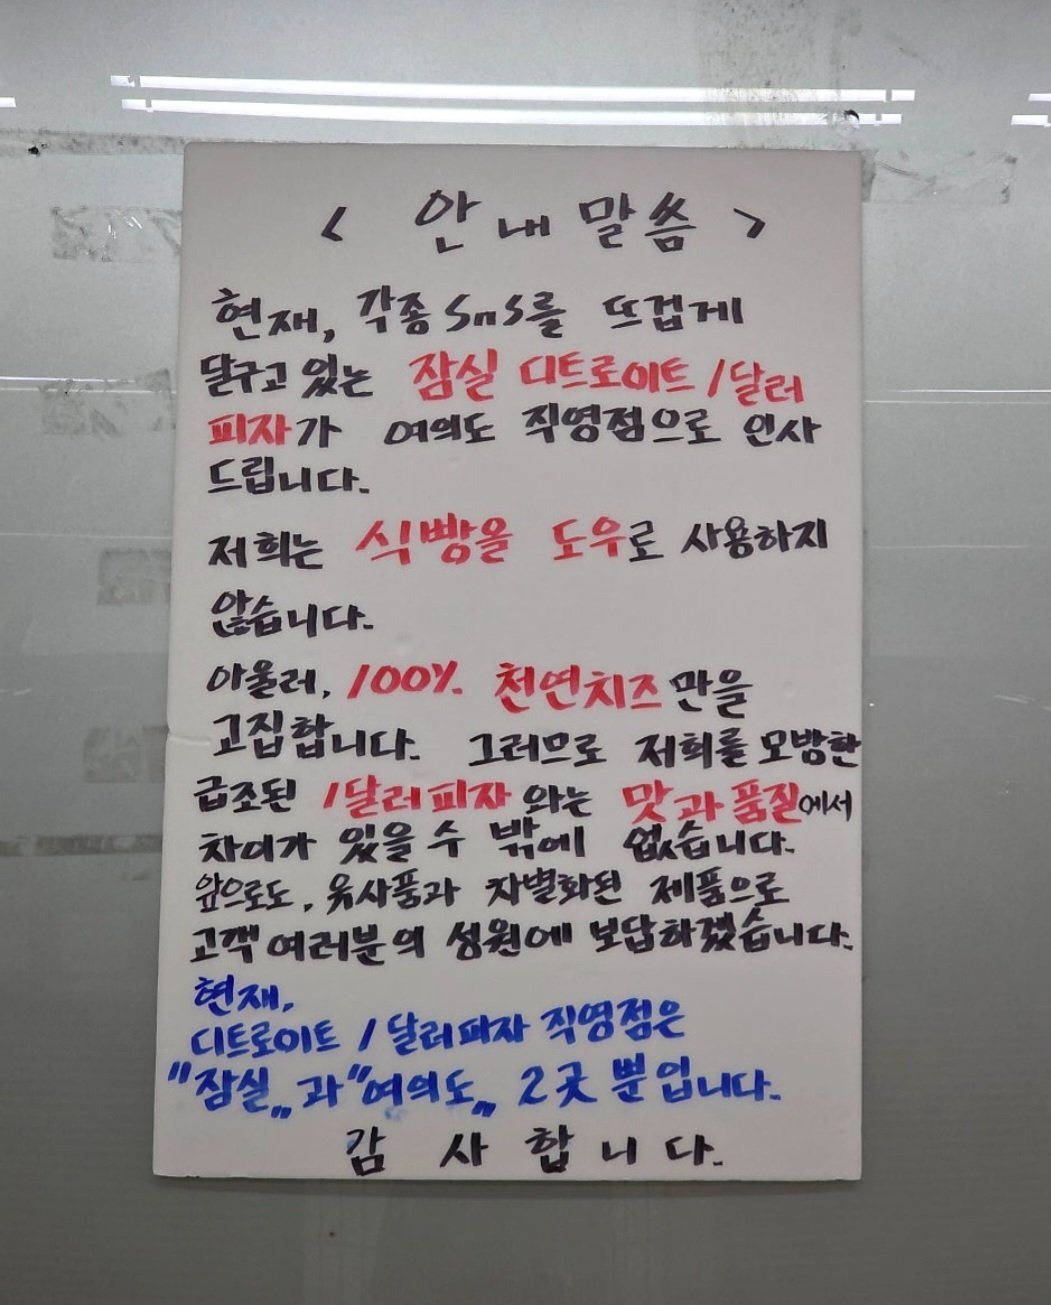 < 안내말씀 >
현재, 각종 SnS를 뜨겁게
달구고 있는 잠실 디트로이트 1달러
피자가 여의도 직영점으로 인사
드립니다.
저희는 식빵을 도우로 사용하지
않습니다.
아울러, 100% 천연치즈만을
고집합니다. 그러므로 저희를 모방한
급조된 1달러피자와는 맛과 품질에서
차이가 있을 수 밖에 없습니다.
앞으로도, 유사품과 차별화된 제품으로
고객 여러분의 성원에 보답하겠습니다.
현재,
디트로이트 1달러피자 직영점은
"잠실„과 "여의도„ 2곳 뿐입니다.
감사합니다.